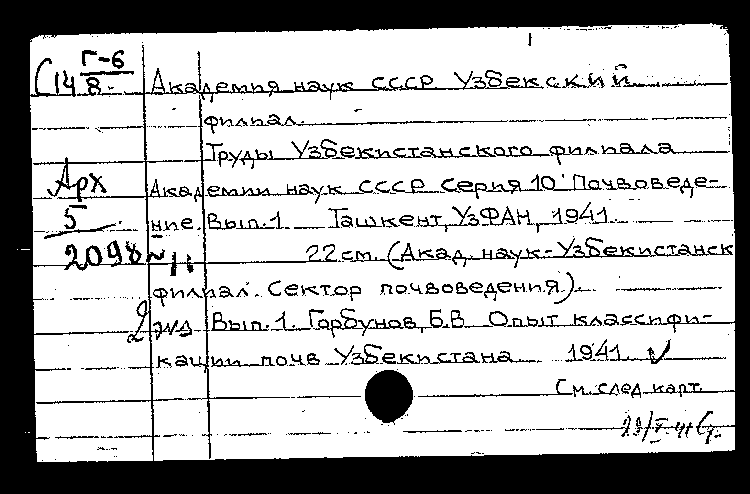 Г-6
С14 8.
Академия наук СССР Узбекский
филиал.
Труды Узбекистанского филиала
Арх
Академии наук СССР Серия 10 Почвоведе-
5
ние. Вып.1 Ташкент, УзФАН, 1941.
2098
22 см. (Акад. наук-Узбекистанск
филиал. Сектор почвоведения).
2 экз Вып.1. Горбунов, Б.В Опыт классифи-
кации почв Узбекистана 1941
См. след карт.